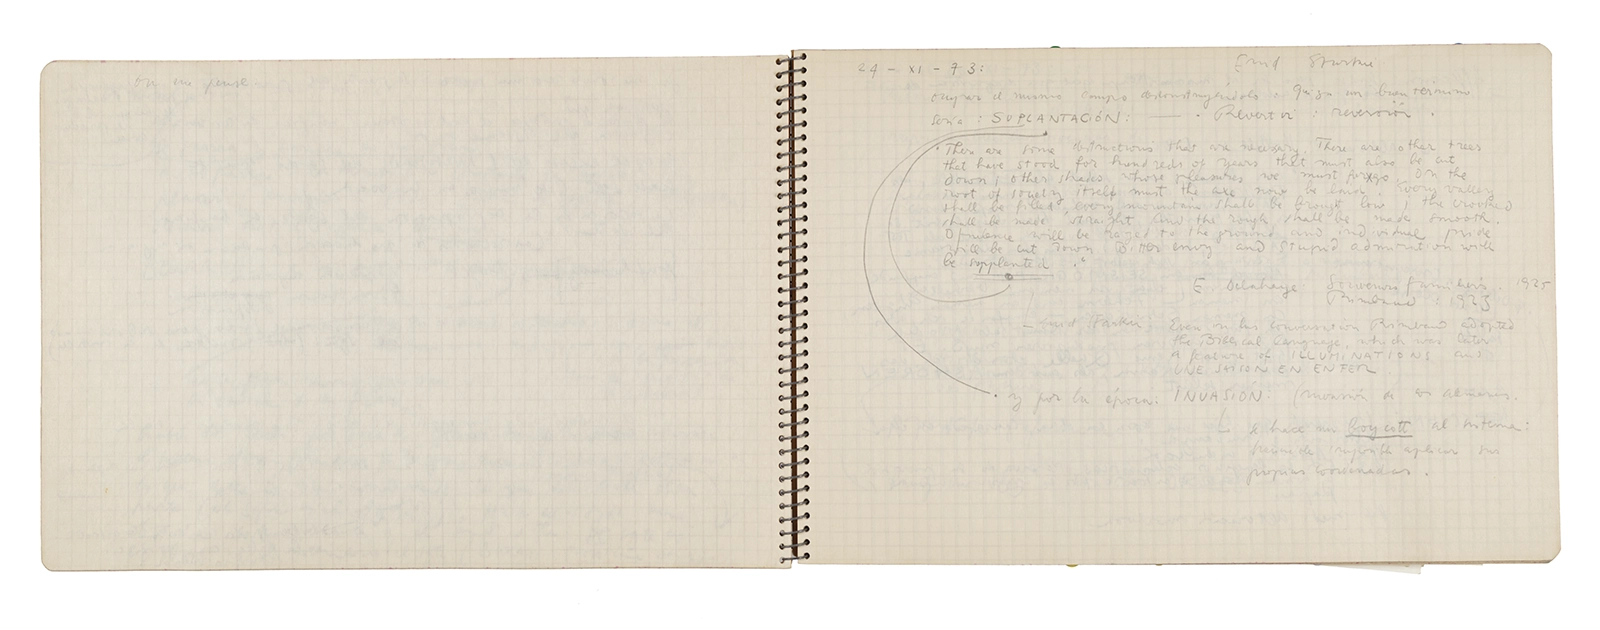 on ne pense
24 - XI - 73:
Enid Starkie
ocupar el mismo campo deconstruyéndolo: Quizá un buen término
sería: SUPLANTACIÓN: — . Revertir: reversión.
"There are some destructions that are necessary. There are other trees
that have stood for hundreds of years that must also be cut
down; other shades whose pleasures we must forego. On the
root of society itself must the axe now be laid. Every valley
shall be filled, every mountain shall be brought low; the crooked
shall be made straight and the rough shall be made smooth.
Opulence will be razed to the ground and individual pride
will be cut down to her envy and stupid admiration will
be supplanted."
E. Delahaye: Souvenirs familiers. 1925
Rimbaud: 1923
Enid Starkie: Even in his conversation Rimbaud adopted
the Biblical language, which was later
a feature of ILLUMINATIONS and
UNE SAISON EN ENFER.
y por la época: INVASIÓN: (invasión de
se hace un boycott al sistema:
imposible aplicar sus
propias coordenadas.